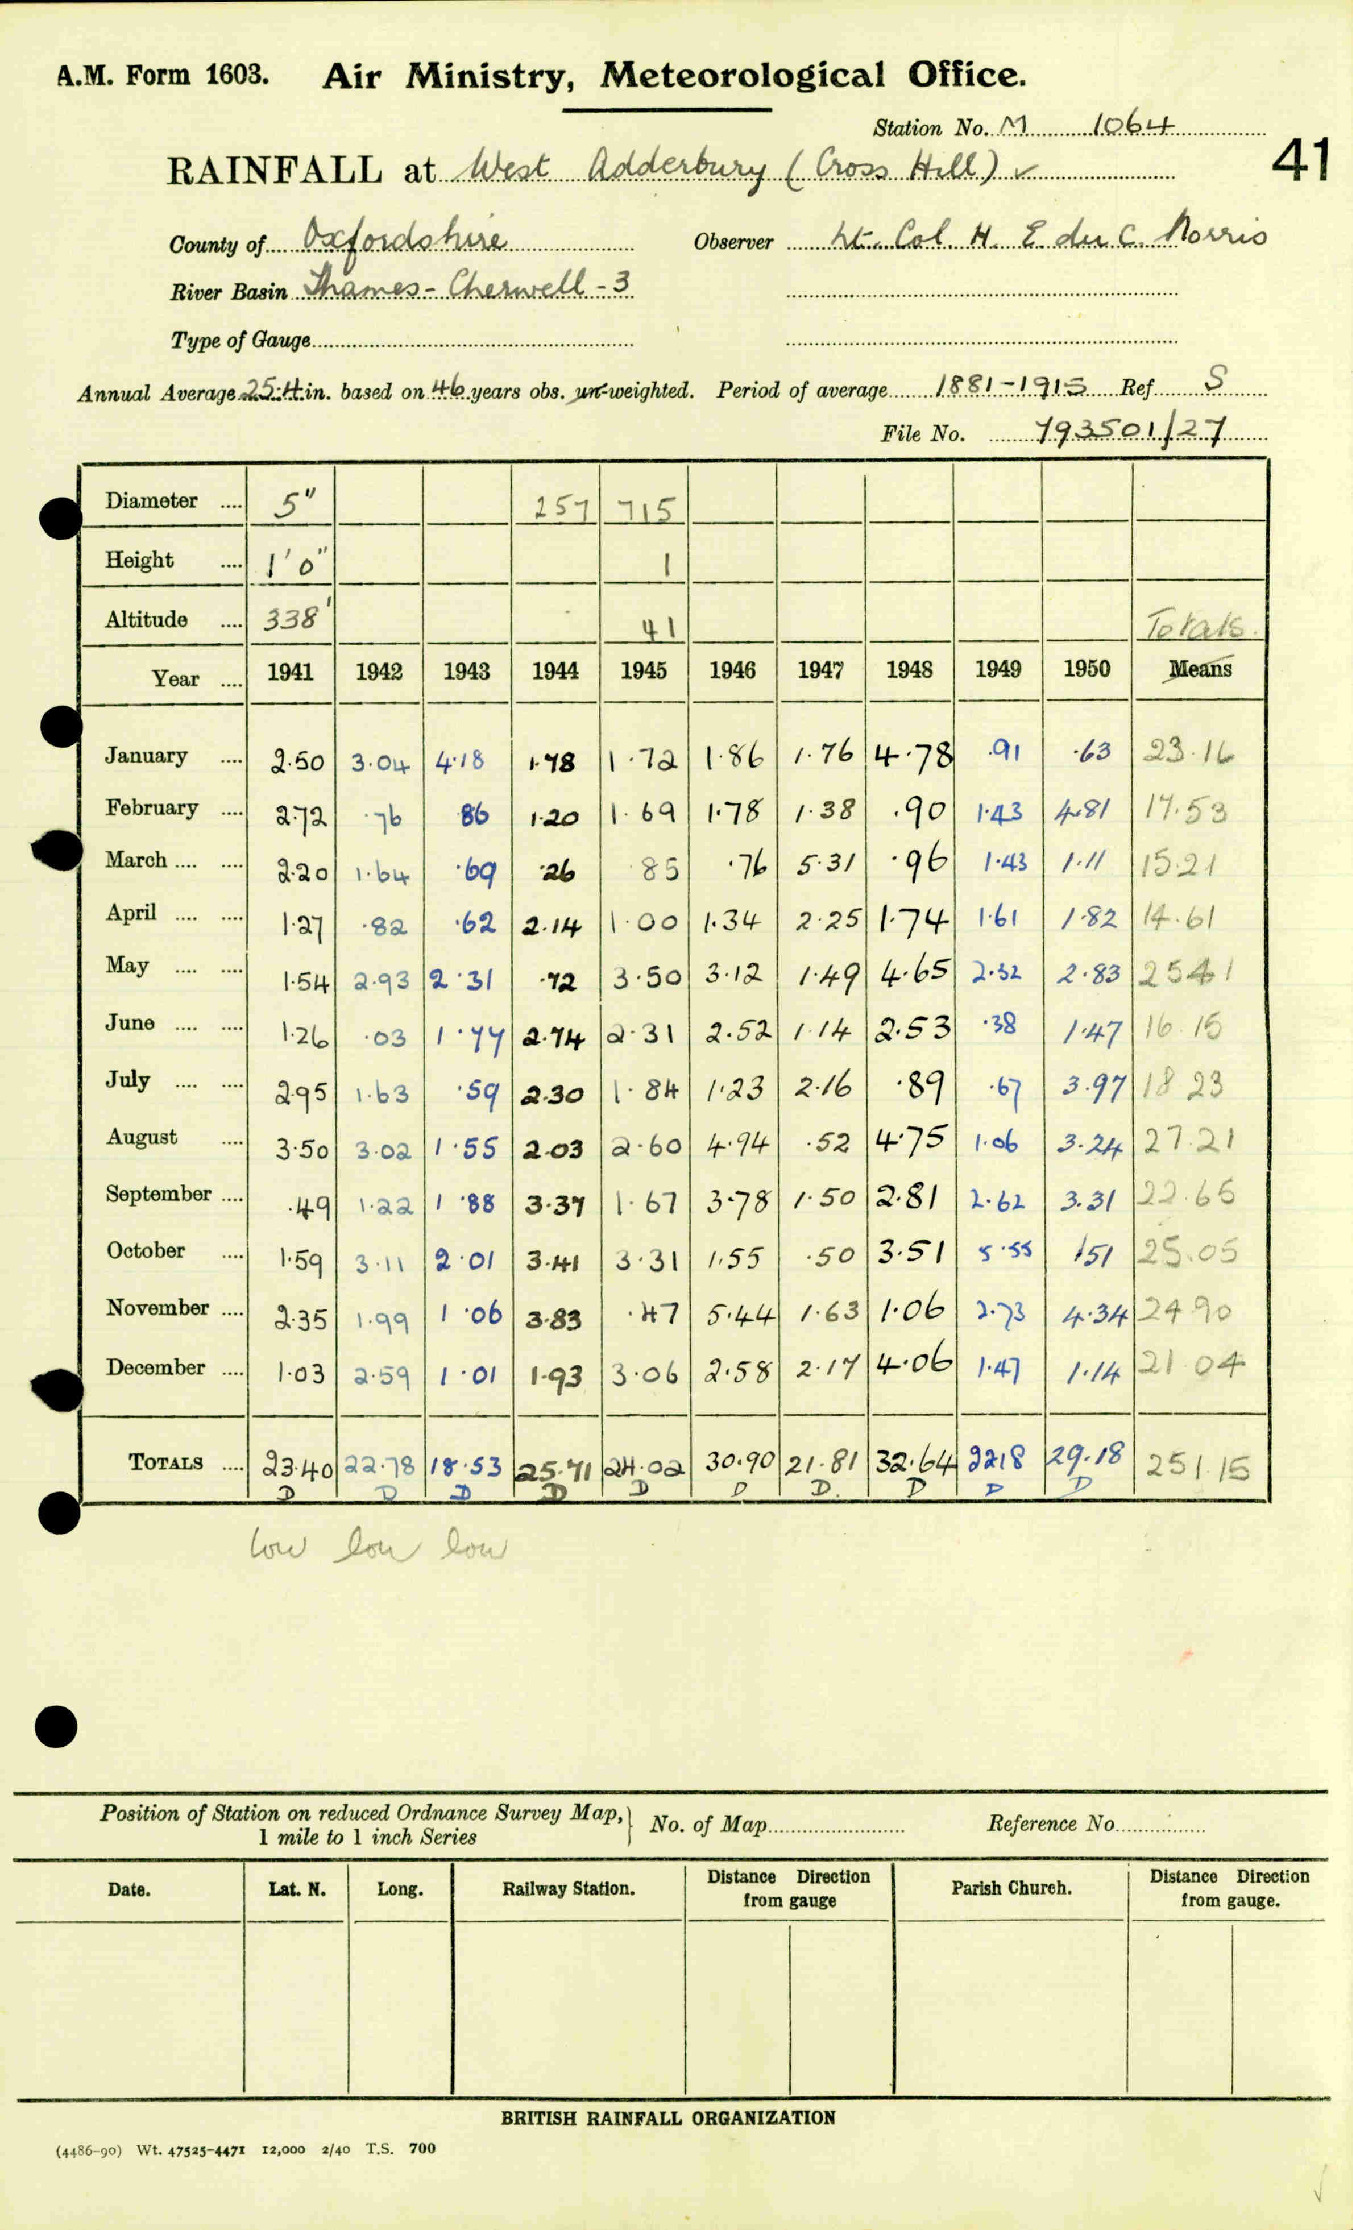 A.M. Form 1603. Air Ministry, Meteorological Office.
Station No. M 1064
RAINFALL at West Adderbury (Cross Hill) ✓ 41
County of Oxfordshire Observer Lt. Col H. E du C. Norris
River Basin Thames - Cherwell - 3
Type of Gauge
Annual Average 25.4 in. based on 46 years obs. un-weighted. Period of average 1881-1915 Ref. S
File No. 793501/27
Diameter 5" 257 715
Height 1' 0" 1
Altitude 338' 41 Totals.
Year 1941 1942 1943 1944 1945 1946 1947 1948 1949 1950 Means
January 2.50 3.04 4.18 1.78 1.72 1.86 1.76 4.78 .91 .63 23.16
February 2.72 .76 .86 1.20 1.69 1.78 1.38 .90 1.43 4.81 17.53
March 2.20 1.64 .69 .26 .85 .76 5.31 .96 1.43 1.11 15.21
April 1.27 .82 .62 2.14 1.00 1.34 2.25 1.74 1.61 1.82 14.61
May 1.54 2.93 2.31 .72 3.50 3.12 1.49 4.65 2.32 2.83 25 41
June 1.26 .03 1.77 2.74 2.31 2.52 1.14 2.53 .38 1.47 16.15
July 2.95 1.63 .59 2.30 1.84 1.23 2.16 .89 .67 3.97 18 23
August 3.50 3.02 1.55 2.03 2.60 4.94 .52 4.75 1.06 3.24 27.21
September .49 1.22 1.88 3.37 1.67 3.78 1.50 2.81 2.62 3.31 22.65
October 1.59 3.11 2.01 3.41 3.31 1.55 .50 3.51 5.55 1.51 25.05
November 2.35 1.99 1.06 3.83 .47 5.44 1.63 1.06 2.73 4.34 24.90
December 1.03 2.59 1.01 1.93 3.06 2.58 2.17 4.06 1.47 1.14 21 04
TOTALS 23.40 22.78 18.53 25.71 24.02 30.90 21.81 32.64 22.18 29.18 251.15
D D D D D D D. D D D
low low low
Position of Station on reduced Ordnance Survey Map, No. of Map Reference No.
1 mile to 1 inch Series
Date. Lat. N. Long. Railway Station. Distance Direction from gauge Parish Church. Distance Direction from gauge.
BRITISH RAINFALL ORGANIZATION
(4486-90) Wt. 47525-4471 12,000 2/40 T.S. 700